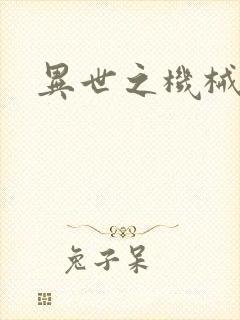 異世之機械
兔子呆